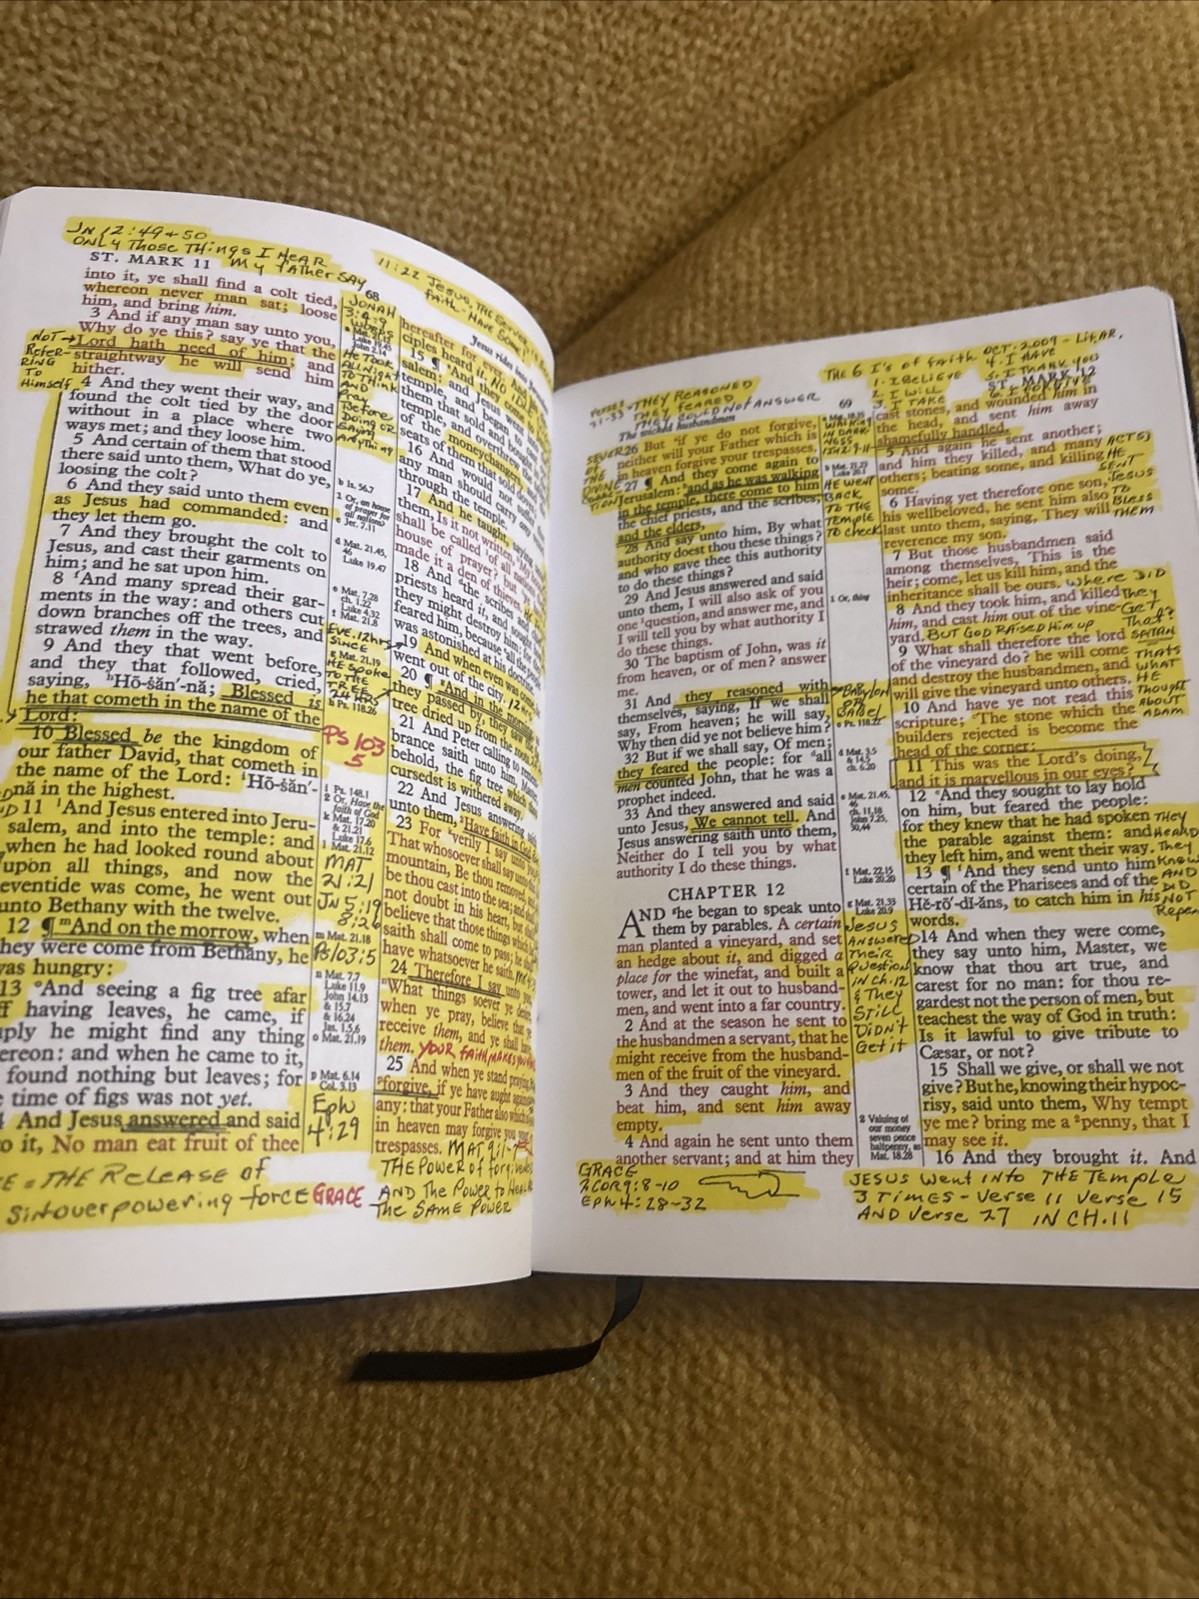 JN 12:49+50
ONLY THOSE THINGS I HEAR
MY FATHER SAY
ST. MARK 11
68
into it, ye shall find a colt tied,
whereon never man sat; loose
him, and bring him.
3 And if any man say unto you,
Why do ye this? say ye that the
Lord hath need of him; and
straightway he will send him
hither.
NOT →
REFER-
RING
TO
Himself
4 And they went their way, and
found the colt tied by the door
without in a place where two
ways met; and they loose him.
5 And certain of them that stood
there said unto them, What do ye,
loosing the colt?
6 And they said unto them even
as Jesus had commanded: and
they let them go.
7 And they brought the colt to
Jesus, and cast their garments on
him; and he sat upon him.
8 And many spread their gar-
ments in the way: and others cut
down branches off the trees, and
strawed them in the way.
9 And they that went before,
and they that followed, cried,
saying, Hō-ṡăn′-nȧ; Blessed is
he that cometh in the name of the
Lord:
10 Blessed be the kingdom of
our father David, that cometh in
the name of the Lord: Hō-ṡăn′-
nȧ in the highest.
11 And Jesus entered into Jeru-
salem, and into the temple: and
when he had looked round about
upon all things, and now the
eventide was come, he went out
unto Bethany with the twelve.
12 ¶ And on the morrow, when
they were come from Bethany, he
was hungry:
13 And seeing a fig tree afar
having leaves, he came, if
might find any thing
and when he came to it,
found nothing but leaves; for
time of figs was not yet.
And Jesus answered and said
it, No man eat fruit of thee
= THE RELEASE OF
Sin overpowering force GRACE
JONAH
HE TOOK
ALL NIGHT
TO THINK
AND
Pray
Before
DOING OR
SAYING
ANYTHING
b Is. 56.7
2 Or, an house
of prayer for
all nations?
c Jer. 7.11
d Mat. 21.45,
46
Luke 19.47
e Mat. 7.28
ch. 1.22
Luke 4.32
f Mat. 21.8
EVE. 12hrs
SINCE
g Mat. 21.19
HE SPOKE
TO THE
TREE
24 HRS
h Ps. 118.26
PS 103
5
i Ps. 148.1
2 Or, Have the
faith of God
k Mat. 17.20
& 21.21
Luke 17.6
l Mat. 21.12
MAT
21:21
JN 5:19
8:26
m Mat. 21.18
Ps 103:5
n Mat. 7.7
Luke 11.9
John 14.13
& 15.7
& 16.24
Jas. 1.5,6
o Mat. 21.19
p Mat. 6.14
Col. 3.13
Eph
4:29
11:22 JESUS, THE SERVER,
faith - HAVE
Jesus rides into
hereafter for ever.
ciples heard it.
15 ¶
salem: and Jesus went
temple, and began
them that sold and
temple, and overthrew
of the moneychangers,
seats of them that sold
16 And would not
any man should carry
through the temple.
17 And he taught, saying
them, Is it not written,
shall be called of all
house of prayer? but
made it a den of thieves.
18 And the scribes
priests heard it, and sought
they might destroy him:
feared him, because all the
was astonished at his
19 And when even was come,
went out of the city.
20 ¶ And in the
they passed by, they saw
tree dried up from the
21 And Peter calling to remem-
brance saith unto him, Master,
behold, the fig tree which
cursedst is withered away.
22 And Jesus answering
unto them, Have faith in God.
23 For verily I say unto
That whosoever shall say unto
mountain, Be thou removed,
be thou cast into the sea; and
not doubt in his heart, but
believe that those things which
saith shall come to pass; he
have whatsoever he saith.
24 Therefore I say unto you,
What things soever ye
when ye pray, believe that
receive them, and ye shall
them. YOUR FAITH MAKES
25 And when ye stand praying,
forgive, if ye have aught
any: that your Father also which
in heaven may forgive you
trespasses. MAT 9:1-7
THE POWER of forgiveness
AND THE POWER to HEAL
THE SAME POWER
THEY REASONED
31-33 THEY FEARED
THEY COULD NOT ANSWER
The wicked husbandmen
69
THE 6 I's of FAITH OCT. 2009 -
1. I BELIEVE
2. I WILL
3. I TAKE
4. I HAVE
5. I THANK YOU
6. I FORGIVE
ST. MARK 12
26 But if ye do not forgive,
neither will your Father which is
in heaven forgive your trespasses.
27 ¶ And they come again to
Jerusalem: and as he was walking
in the temple, there come to him
the chief priests, and the scribes,
and the elders,
28 And say unto him, By what
authority doest thou these things?
and who gave thee this authority
to do these things?
29 And Jesus answered and said
unto them, I will also ask of you
one question, and answer me, and
I will tell you by what authority I
do these things.
30 The baptism of John, was it
from heaven, or of men? answer
me.
31 And they reasoned with
themselves, saying, If we shall
say, From heaven; he will say,
Why then did ye not believe him?
32 But if we shall say, Of men;
they feared the people: for all
men counted John, that he was a
prophet indeed.
33 And they answered and said
unto Jesus, We cannot tell. And
Jesus answering saith unto them,
Neither do I tell you by what
authority I do these things.
CHAPTER 12
AND he began to speak unto
them by parables. A certain
man planted a vineyard, and set
an hedge about it, and digged a
place for the winefat, and built a
tower, and let it out to husband-
men, and went into a far country.
2 And at the season he sent to
the husbandmen a servant, that he
might receive from the husband-
men of the fruit of the vineyard.
3 And they caught him, and
beat him, and sent him away
empty.
4 And again he sent unto them
another servant; and at him they
GRACE
2 COR 9:8-10
EPH 4:28-32
WALKING
IN DARK-
NESS
b Mat. 21.23
Luke 20.1
HE WENT
BACK
TO THE
TEMPLE
TO check
1 Or, thing
BABYLON
OR
BABEL
d Mat. 3.5
& 14.5
ch. 6.20
e Mat. 21.45,
46
ch. 11.18
John 7.25,
30,44
f Mat. 22.15
Luke 20.20
g Mat. 21.33
Luke 20.9
JESUS
ANSWERED
THEIR
QUESTION
IN CH.12
& THEY
STILL
DIDN'T
Get it
2 Valuing of
our money
seven pence
halfpenny, as
Mat. 18.28
cast stones, and wounded him in
the head, and sent him away
shamefully handled.
5 And again he sent another;
and him they killed, and many
others; beating some, and killing
some.
6 Having yet therefore one son,
his wellbeloved, he sent him also
last unto them, saying, They will
reverence my son.
ACTS 3
HE
SENT
JESUS
TO
BLESS
THEM
7 But those husbandmen said
among themselves, This is the
heir; come, let us kill him, and the
inheritance shall be ours.
8 And they took him, and killed
him, and cast him out of the vine-
yard. BUT GOD RAISED HIM UP
WHERE DID
THEY
GET
THAT?
SATAN
THATS
WHAT
HE
THOUGHT
ABOUT
ADAM
9 What shall therefore the lord
of the vineyard do? he will come
and destroy the husbandmen, and
will give the vineyard unto others.
10 And have ye not read this
scripture; The stone which the
builders rejected is become the
head of the corner:
11 This was the Lord's doing,
and it is marvellous in our eyes?
12 And they sought to lay hold
on him, but feared the people:
for they knew that he had spoken
the parable against them: and
they left him, and went their way.
13 ¶ And they send unto him
certain of the Pharisees and of the
Hĕ-rō′-dĭ-ăns, to catch him in his
words.
THEY
HEARD
They
KNEW
AND
DID
NOT
Repent
14 And when they were come,
they say unto him, Master, we
know that thou art true, and
carest for no man: for thou re-
gardest not the person of men, but
teachest the way of God in truth:
Is it lawful to give tribute to
Cæsar, or not?
15 Shall we give, or shall we not
give? But he, knowing their hypoc-
risy, said unto them, Why tempt
ye me? bring me a penny, that I
may see it.
16 And they brought it. And
JESUS WENT INTO THE TEMPLE
3 TIMES - VERSE 11 VERSE 15
AND VERSE 27 IN CH.11